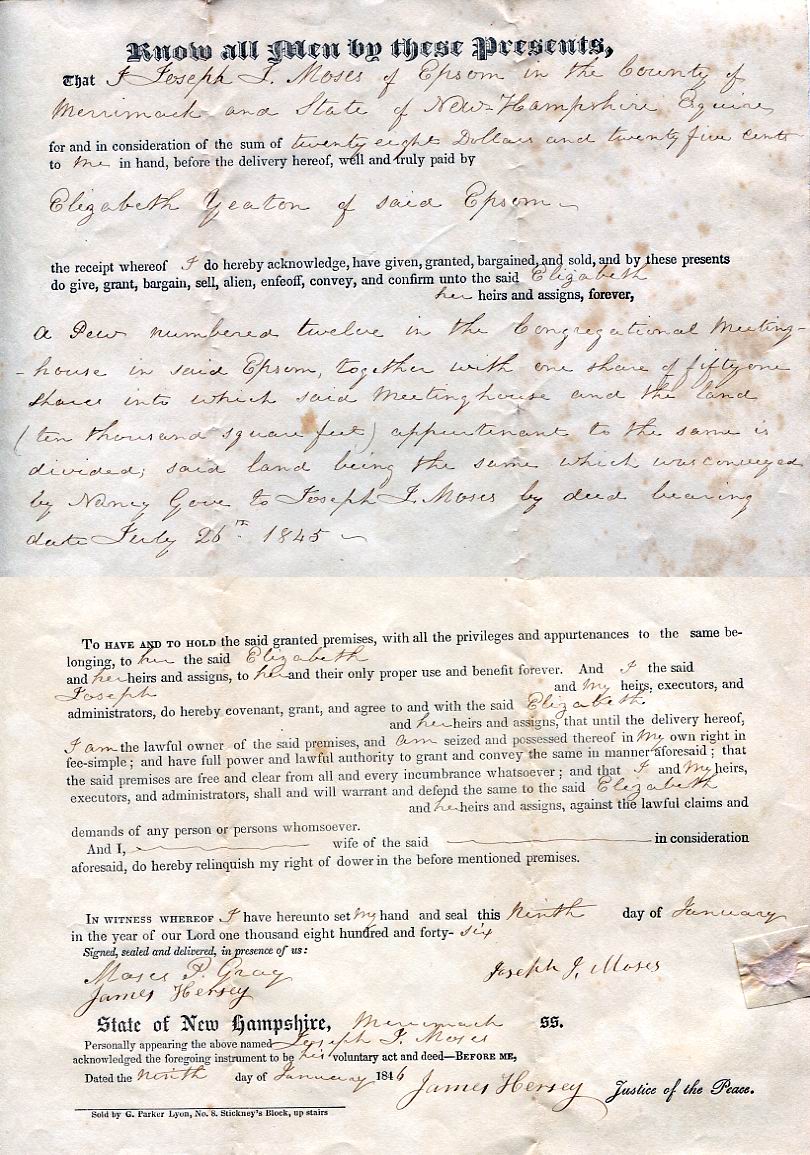 Know all Men by these Presents,
That I Joseph J. Moses of Epsom in the County of
Merrimack and State of New-Hampshire Esquire,
for and in consideration of the sum of twenty eight Dollars and twenty five cents
to me in hand, before the delivery hereof, well and truly paid by
Elizabeth Yeaton of said Epsom
the receipt whereof I do hereby acknowledge, have given, granted, bargained, and sold, and by these presents
do give, grant, bargain, sell, alien, enfeoff, convey, and confirm unto the said Elizabeth
her heirs and assigns, forever,
A Pew numbered twelve in the Congregational Meeting-
-house in said Epsom, together with one share of fifty one
shares into which said Meetinghouse and the land
(ten thousand square feet) appurtenant to the same is
divided; said land being the same which was conveyed
by Nancy Gove to Joseph J. Moses by deed bearing
date July 26th. 1845
To have and to hold the said granted premises, with all the privileges and appurtenances to the same be-
longing, to her the said Elizabeth
and her heirs and assigns, to her and their only proper use and benefit forever. And I the said
Joseph and my heirs, executors, and
administrators, do hereby covenant, grant, and agree to and with the said Elizabeth
and her heirs and assigns, that until the delivery hereof,
I am the lawful owner of the said premises, and am seized and possessed thereof in my own right in
fee-simple; and have full power and lawful authority to grant and convey the same in manner aforesaid; that
the said premises are free and clear from all and every incumbrance whatsoever; and that I and my heirs,
executors, and administrators, shall and will warrant and defend the same to the said Elizabeth
and her heirs and assigns, against the lawful claims and
demands of any person or persons whomsoever.
And I, wife of the said in consideration
aforesaid, do hereby relinquish my right of dower in the before mentioned premises.
In witness whereof I have hereunto set my hand and seal this Ninth day of January
in the year of our Lord one thousand eight hundred and forty- six
Signed, sealed and delivered, in presence of us:
Moses P. Gray Joseph J. Moses
James Hersey
State of New Hampshire, Merrimack SS.
Personally appearing the above named Joseph J. Moses
acknowledged the foregoing instrument to be his voluntary act and deed—Before me,
Dated the Ninth day of January 1846 James Hersey Justice of the Peace.
Sold by G. Parker Lyon, No. 8. Stickney's Block, up stairs